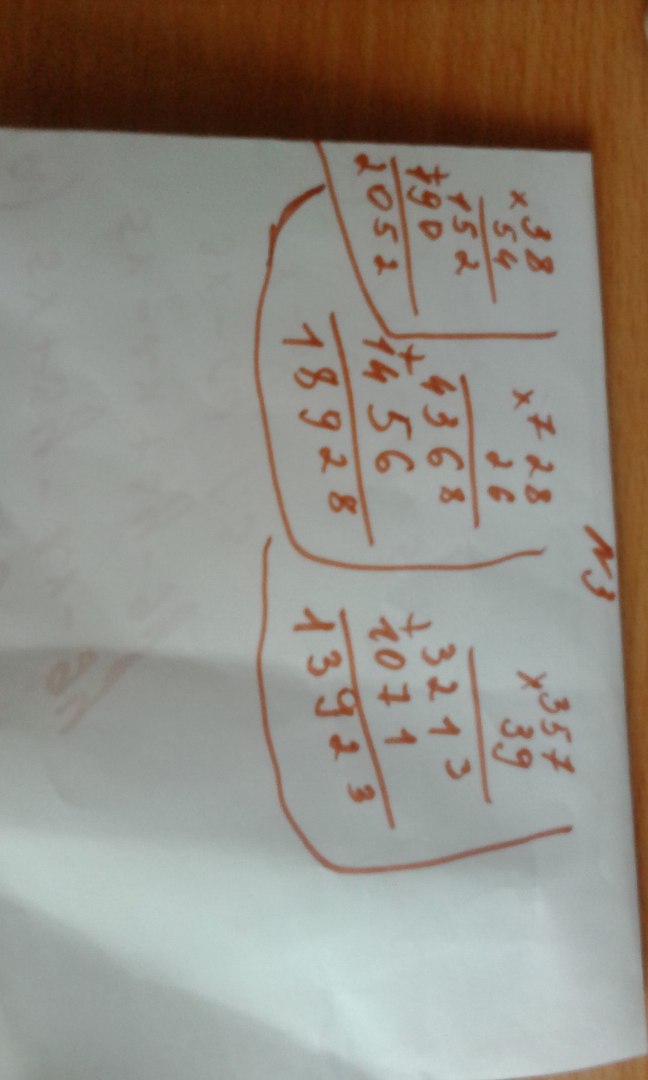 N3
x 38
54
152
+
190
2052
x 728
26
4368
+
1456
18928
x 357
39
3213
+
1071
13923